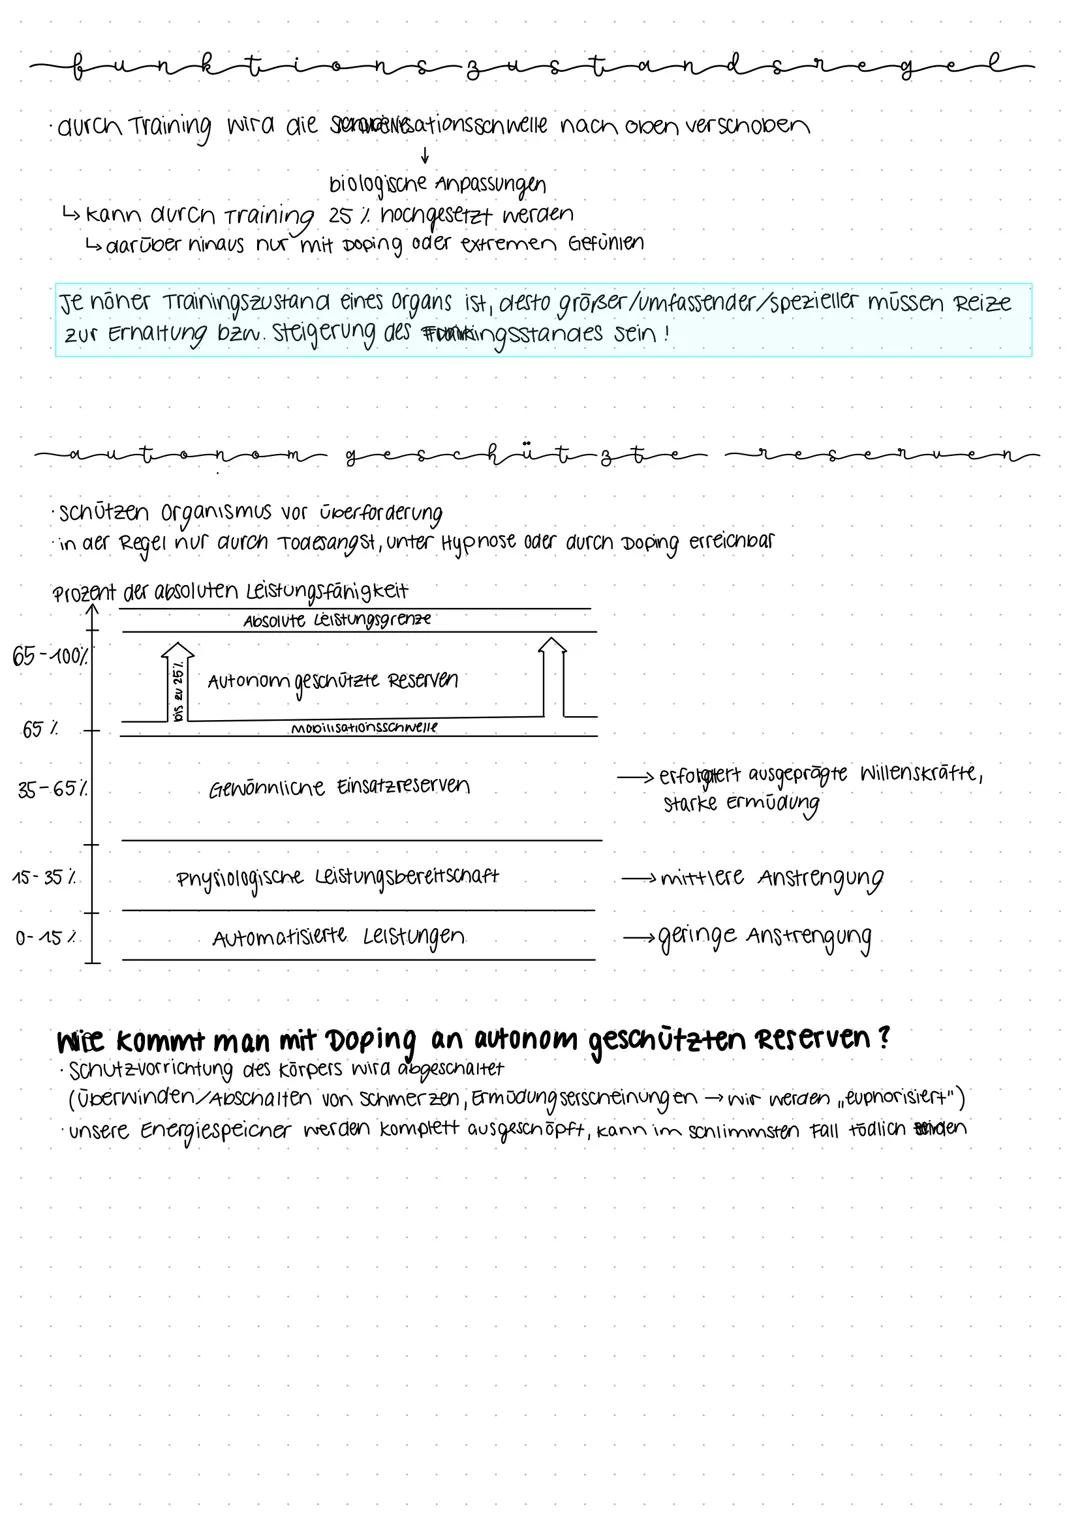 funktionszustandsregel
· durch Training wird die Mobilisationsschwelle nach oben verschoben
↓
biologische Anpassungen
↳ kann durch Training 25 % hochgesetzt werden
↳ darüber hinaus nur mit Doping oder extremen Gefühlen
Je höher Trainingszustand eines Organs ist, desto größer/umfassender/spezieller müssen Reize
zur Erhaltung bzw. Steigerung des sein!
autonom geschützte reserven
· schützen Organismus vor Überforderung
· in der Regel nur durch Todesangst, unter Hypnose oder durch Doping erreichbar
Prozent der absoluten Leistungsfähigkeit
Absolute Leistungsgrenze
65-100%
bis zu 25%
Autonom geschützte Reserven
65 %
Mobilisationsschwelle
35-65%
Gewöhnliche Einsatzreserven
→ erfordert ausgeprägte Willenskräfte,
starke Ermüdung
15-35 %
Physiologische Leistungsbereitschaft
→ mittlere Anstrengung
0-15 %
Automatisierte Leistungen
→ geringe Anstrengung
Wie kommt man mit Doping an autonom geschützten Reserven?
· Schutzvorrichtung des Körpers wird abgeschaltet
(Überwinden/Abschalten von Schmerzen, Ermüdungserscheinungen → wir werden „euphorisiert")
· unsere Energiespeicher werden komplett ausgeschöpft, kann im schlimmsten Fall tödlich